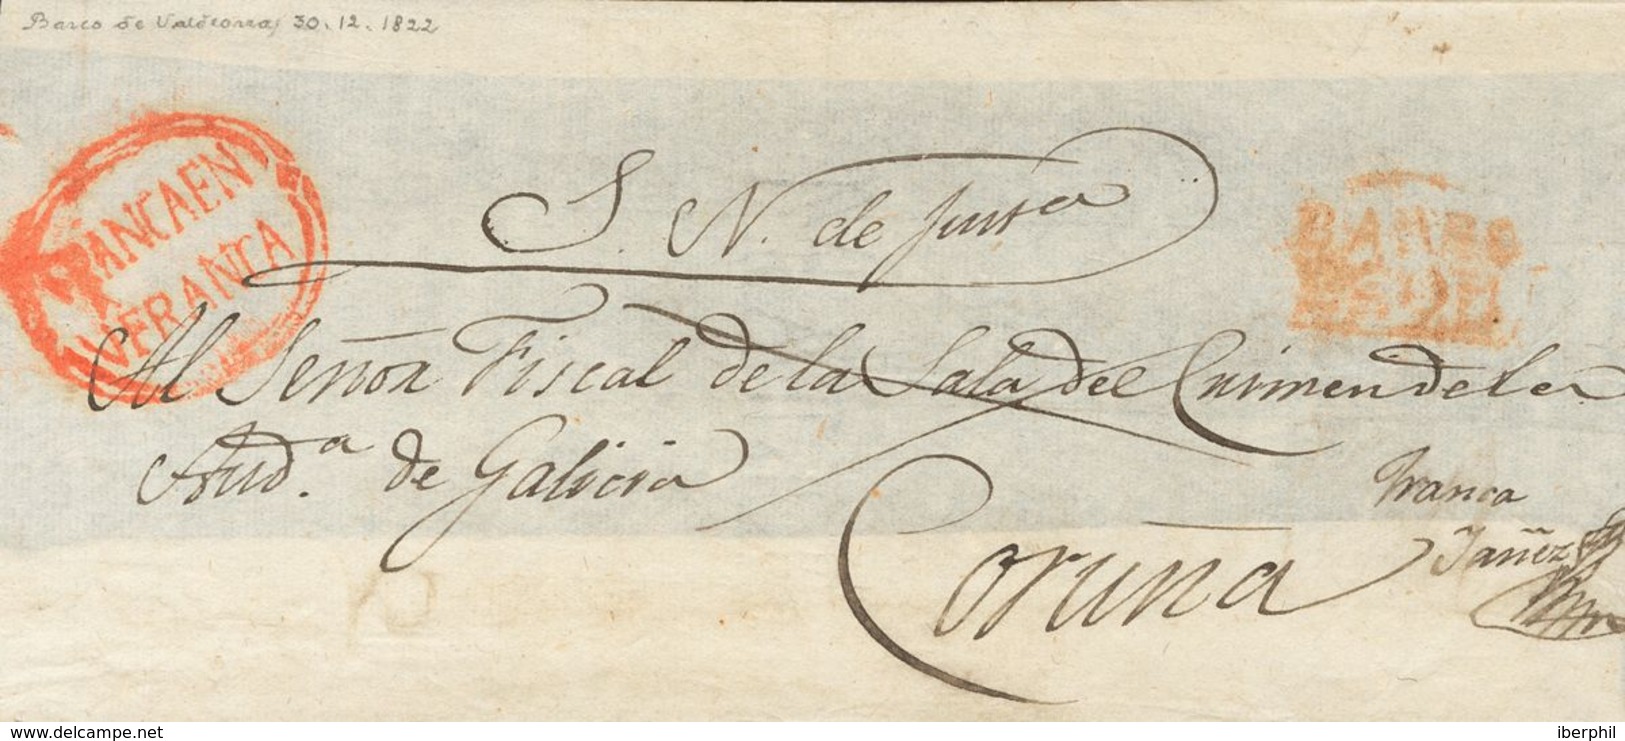 Barco de Valdeorras 30.12.1822
FRANCA EN
VFRANCA
S. N. de Justa
BARCO
Al Señor Fiscal de la Sala del Crimen de la
Aud.a de Galicia
Franca
Yañez
Coruña
delcampe.net
iberphil